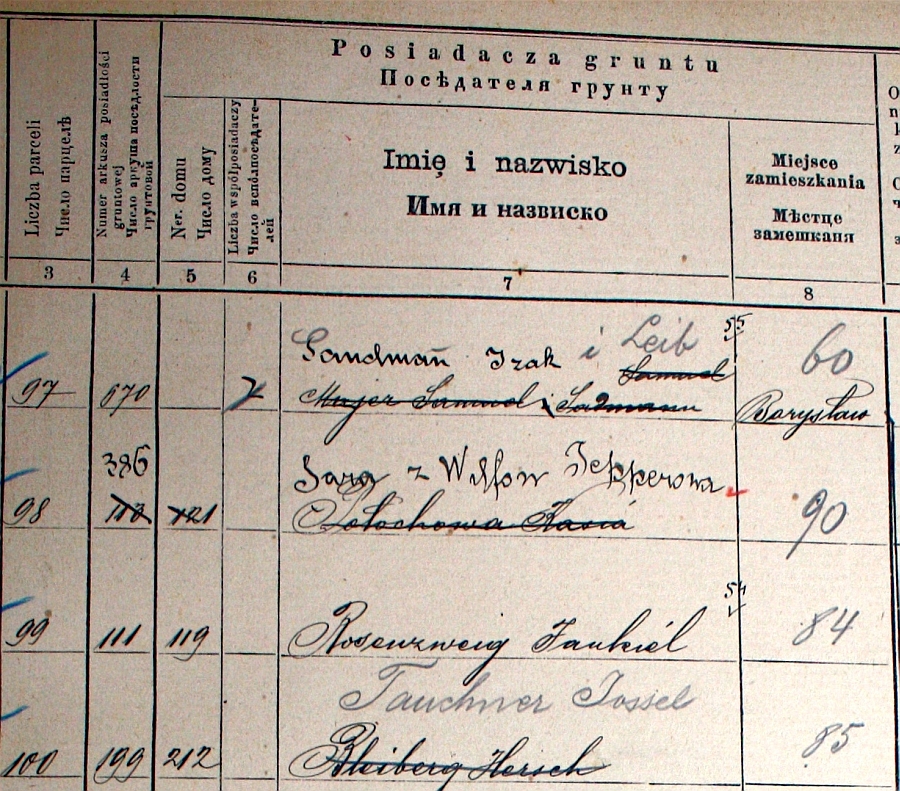 Posiadacza gruntu
Посѣдателя грунту
Liczba parceli
Число парцелѣ
Numer arkusza posiadłości
gruntowej
Число аркуша посѣдлости
грунтовой
Ner. domu
Число дому
Liczba współposiadaczy
Число вспôлпосѣдате-
лей
Imię i nazwisko
Имя и назвиско
Miejsce
zamieszkania
Мѣстце
замешканя
3 4 5 6 7 8
Landman Izak i Leib 55 60
Samuel
97 670 2 Samuel i Borysław
386 Sara z Wolfów Tepperowa
98 113 121 90
54
99 111 119 Rosenzweig Jankiel 84
Tauchner Jossel
100 199 212 Bleiberg Hersch 85